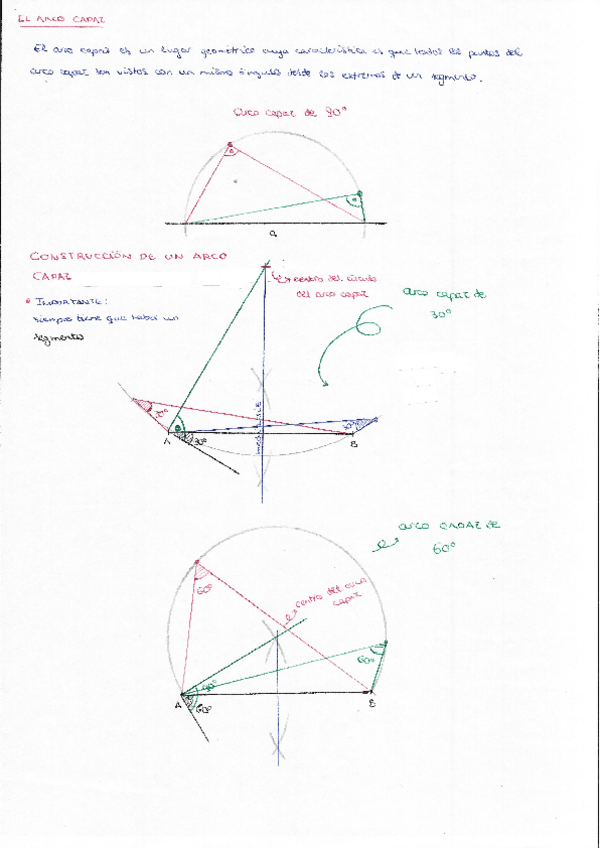 EL ARCO CAPAZ
El arco capaz es un lugar geométrico cuya característica es que todos los puntos del
arco capaz son vistos con un mismo ángulo desde los extremos de un segmento.
arco capaz de 90°
CONSTRUCCIÓN DE UN ARCO
CAPAZ
centro del círculo
del arco capaz
arco capaz de
30°
* IMPORTANTE:
siempre tiene que haber un
segmento
30°
mediatriz
A
30°
B
arco capaz de
60°
60°
centro del arco
capaz
60°
90°
A
60°
B